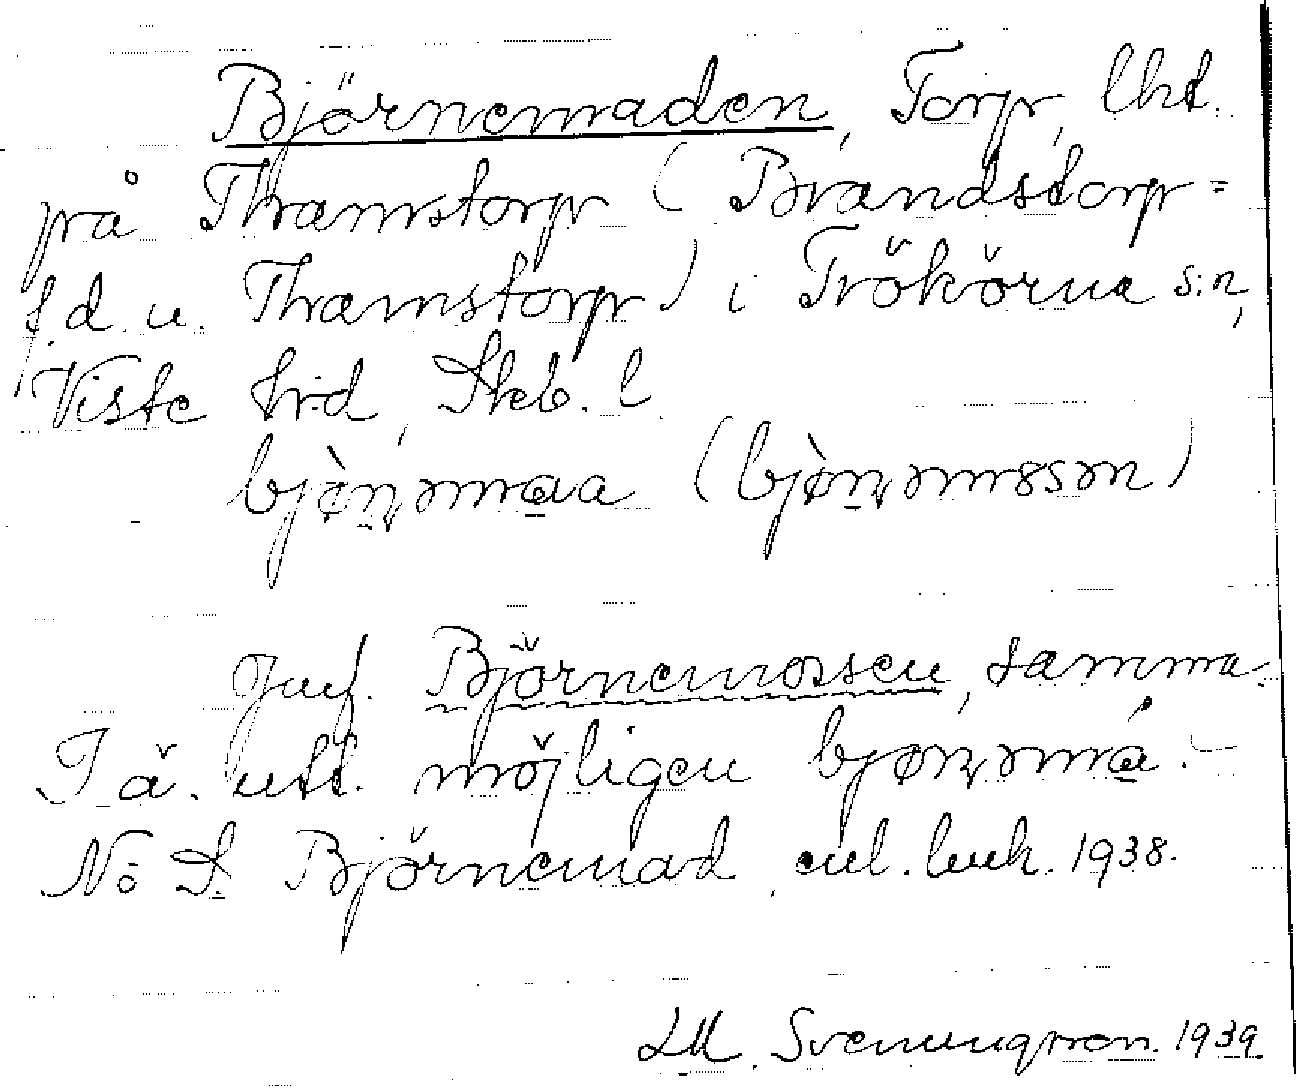 Björnemaden, Torp, lht.
på Thamstorp (Brandstorp=
f.d. u. Thamstorp) i Trökörna s:n,
Viste hrd, Skb. l.
bjǿṇəmaa (bjǿṇəmɜsən)
Jmf. Björnemossen, samma.
I ä. utt. möjligen bjøṇəmá.-
Nö S. Björnemad, enl. luuk. 1938.
LM. Svenungsson. 1939